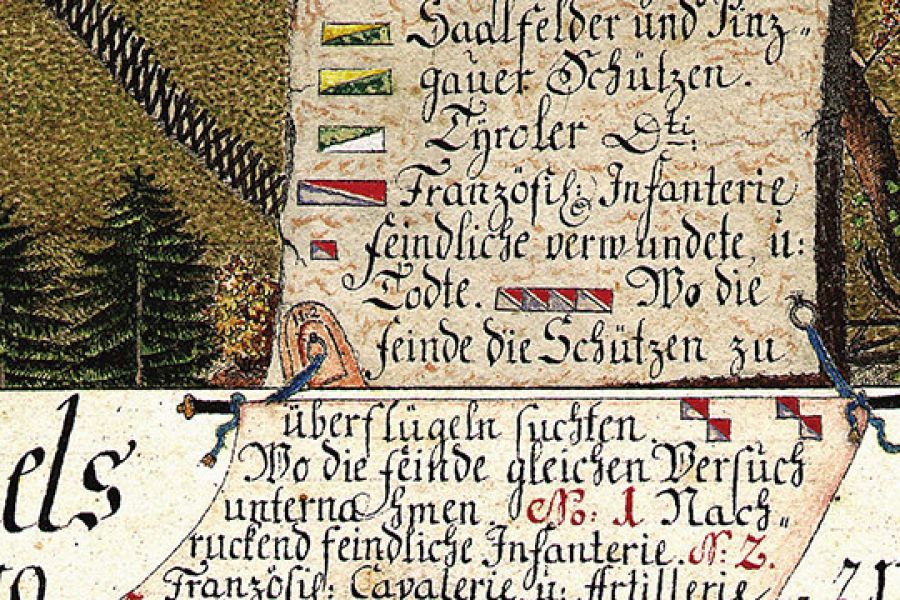 Saalfelder und Pinz-
gauer Schützen.
Tyroler Dti:
Französis: Infanterie
feindliche verwundete, u:
Todte. Wo die
feinde die Schützen zu
überflügeln suchten.
Wo die feinde gleichen Versuch
unternahmen. No: 1 Nach-
ruckend feindliche Infanterie. No: 2.
Französis: Cavalerie u: Artillerie
els